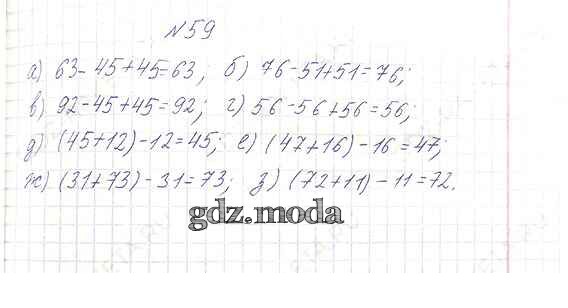 №59
а) 63-45+45=63; б) 76-51+51=76;
в) 92-45+45=92; г) 56-56+56=56;
д) (45+12)-12=45; е) (47+16)-16=47;
ж) (31+73)-31=73; з) (72+11)-11=72.
gdz.moda